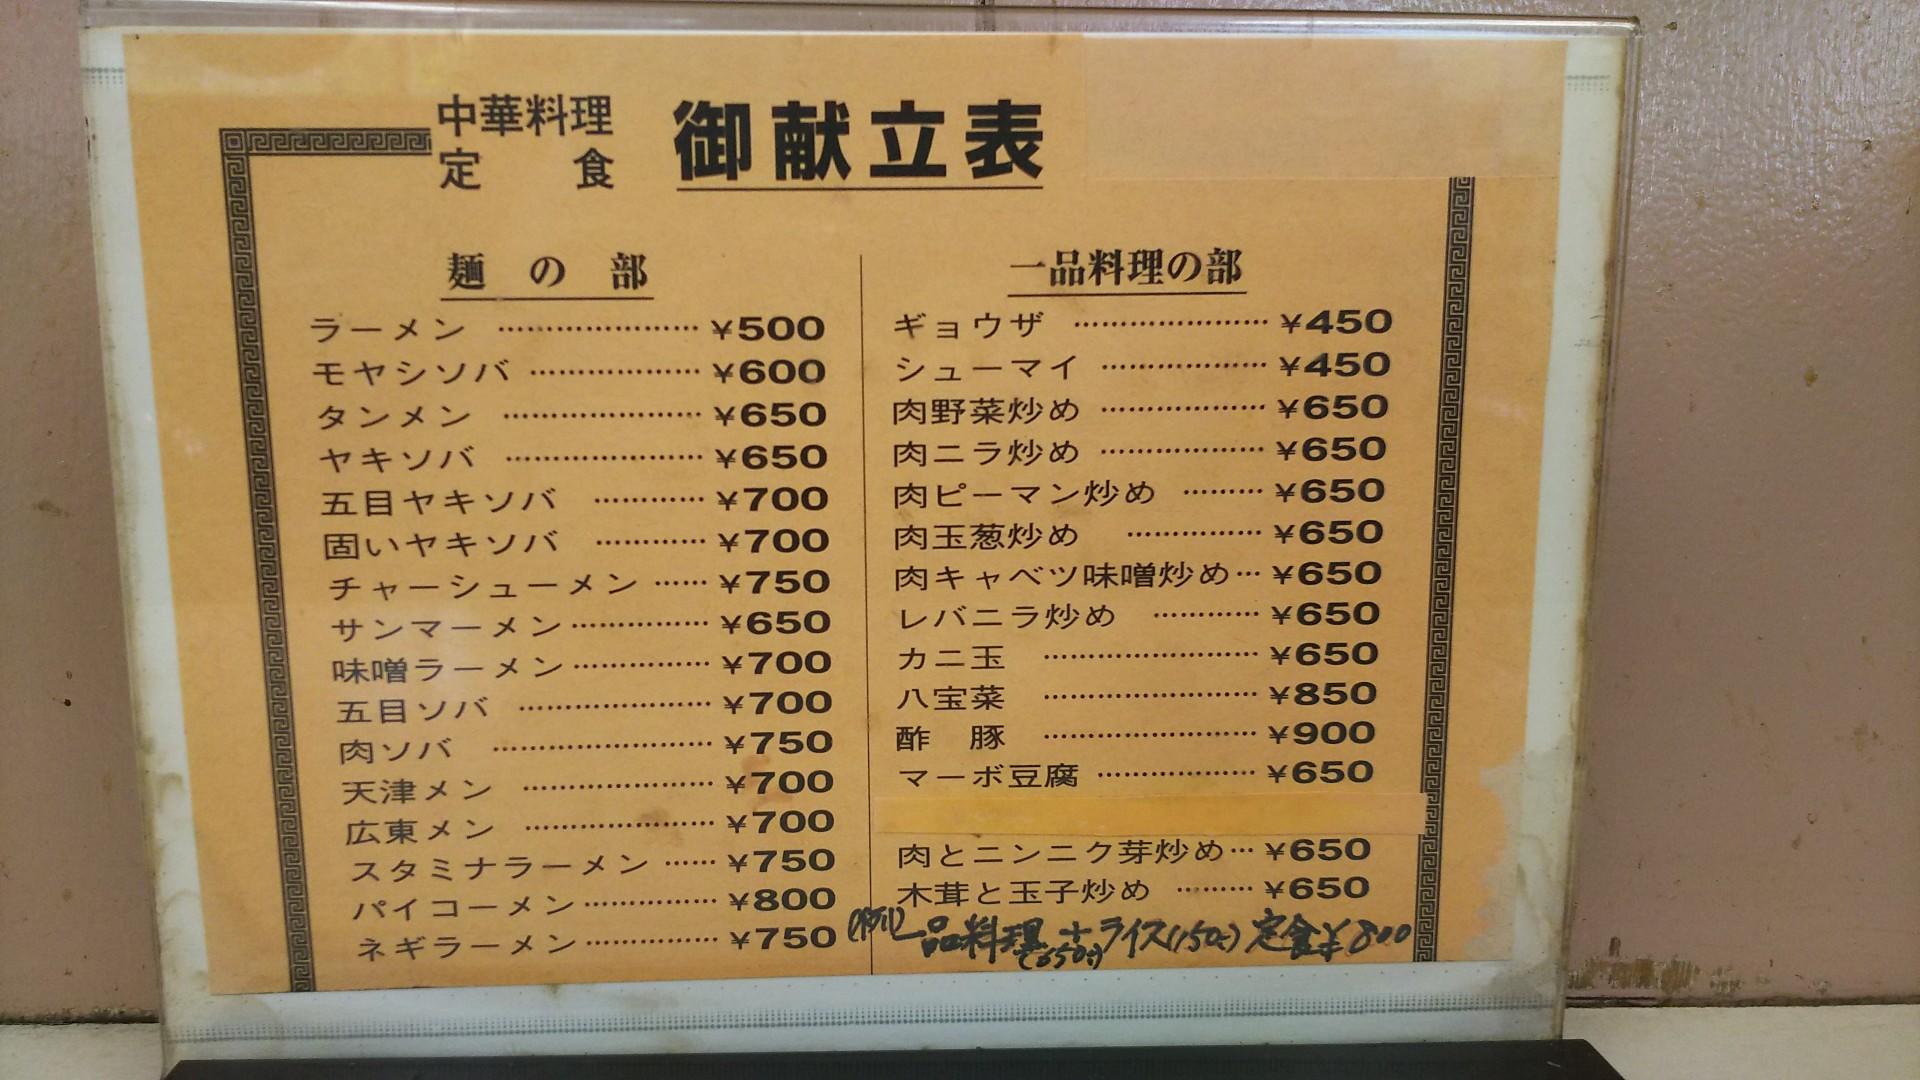 中華料理
定食
御献立表
麺の部
ラーメン ………………… ¥500
モヤシソバ ……………… ¥600
タンメン ………………… ¥650
ヤキソバ ………………… ¥650
五目ヤキソバ ………… ¥700
固いヤキソバ ………… ¥700
チャーシューメン …… ¥750
サンマーメン …………… ¥650
味噌ラーメン …………… ¥700
五目ソバ ………………… ¥700
肉ソバ …………………… ¥750
天津メン ………………… ¥700
広東メン ………………… ¥700
スタミナラーメン …… ¥750
パイコーメン …………… ¥800
ネギラーメン …………… ¥750
一品料理の部
ギョウザ ………………… ¥450
シューマイ ……………… ¥450
肉野菜炒め ……………… ¥650
肉ニラ炒め ……………… ¥650
肉ピーマン炒め ……… ¥650
肉玉葱炒め …………… ¥650
肉キャベツ味噌炒め… ¥650
レバニラ炒め ………… ¥650
カニ玉 …………………… ¥650
八宝菜 …………………… ¥850
酢豚 …………………… ¥900
マーボ豆腐 ……………… ¥650
肉とニンニク芽炒め… ¥650
木茸と玉子炒め ……… ¥650
(例)一品料理(650円)+ライス(150円)定食¥800